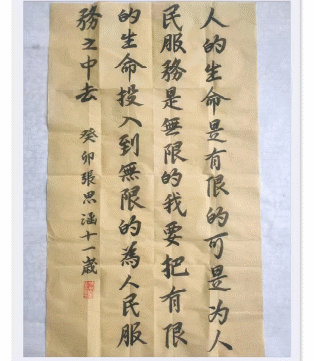 人的生命是有限的可是为人
民服務是無限的我要把有限
的生命投入到無限的為人民服
務之中去
癸卯張思涵十一歲